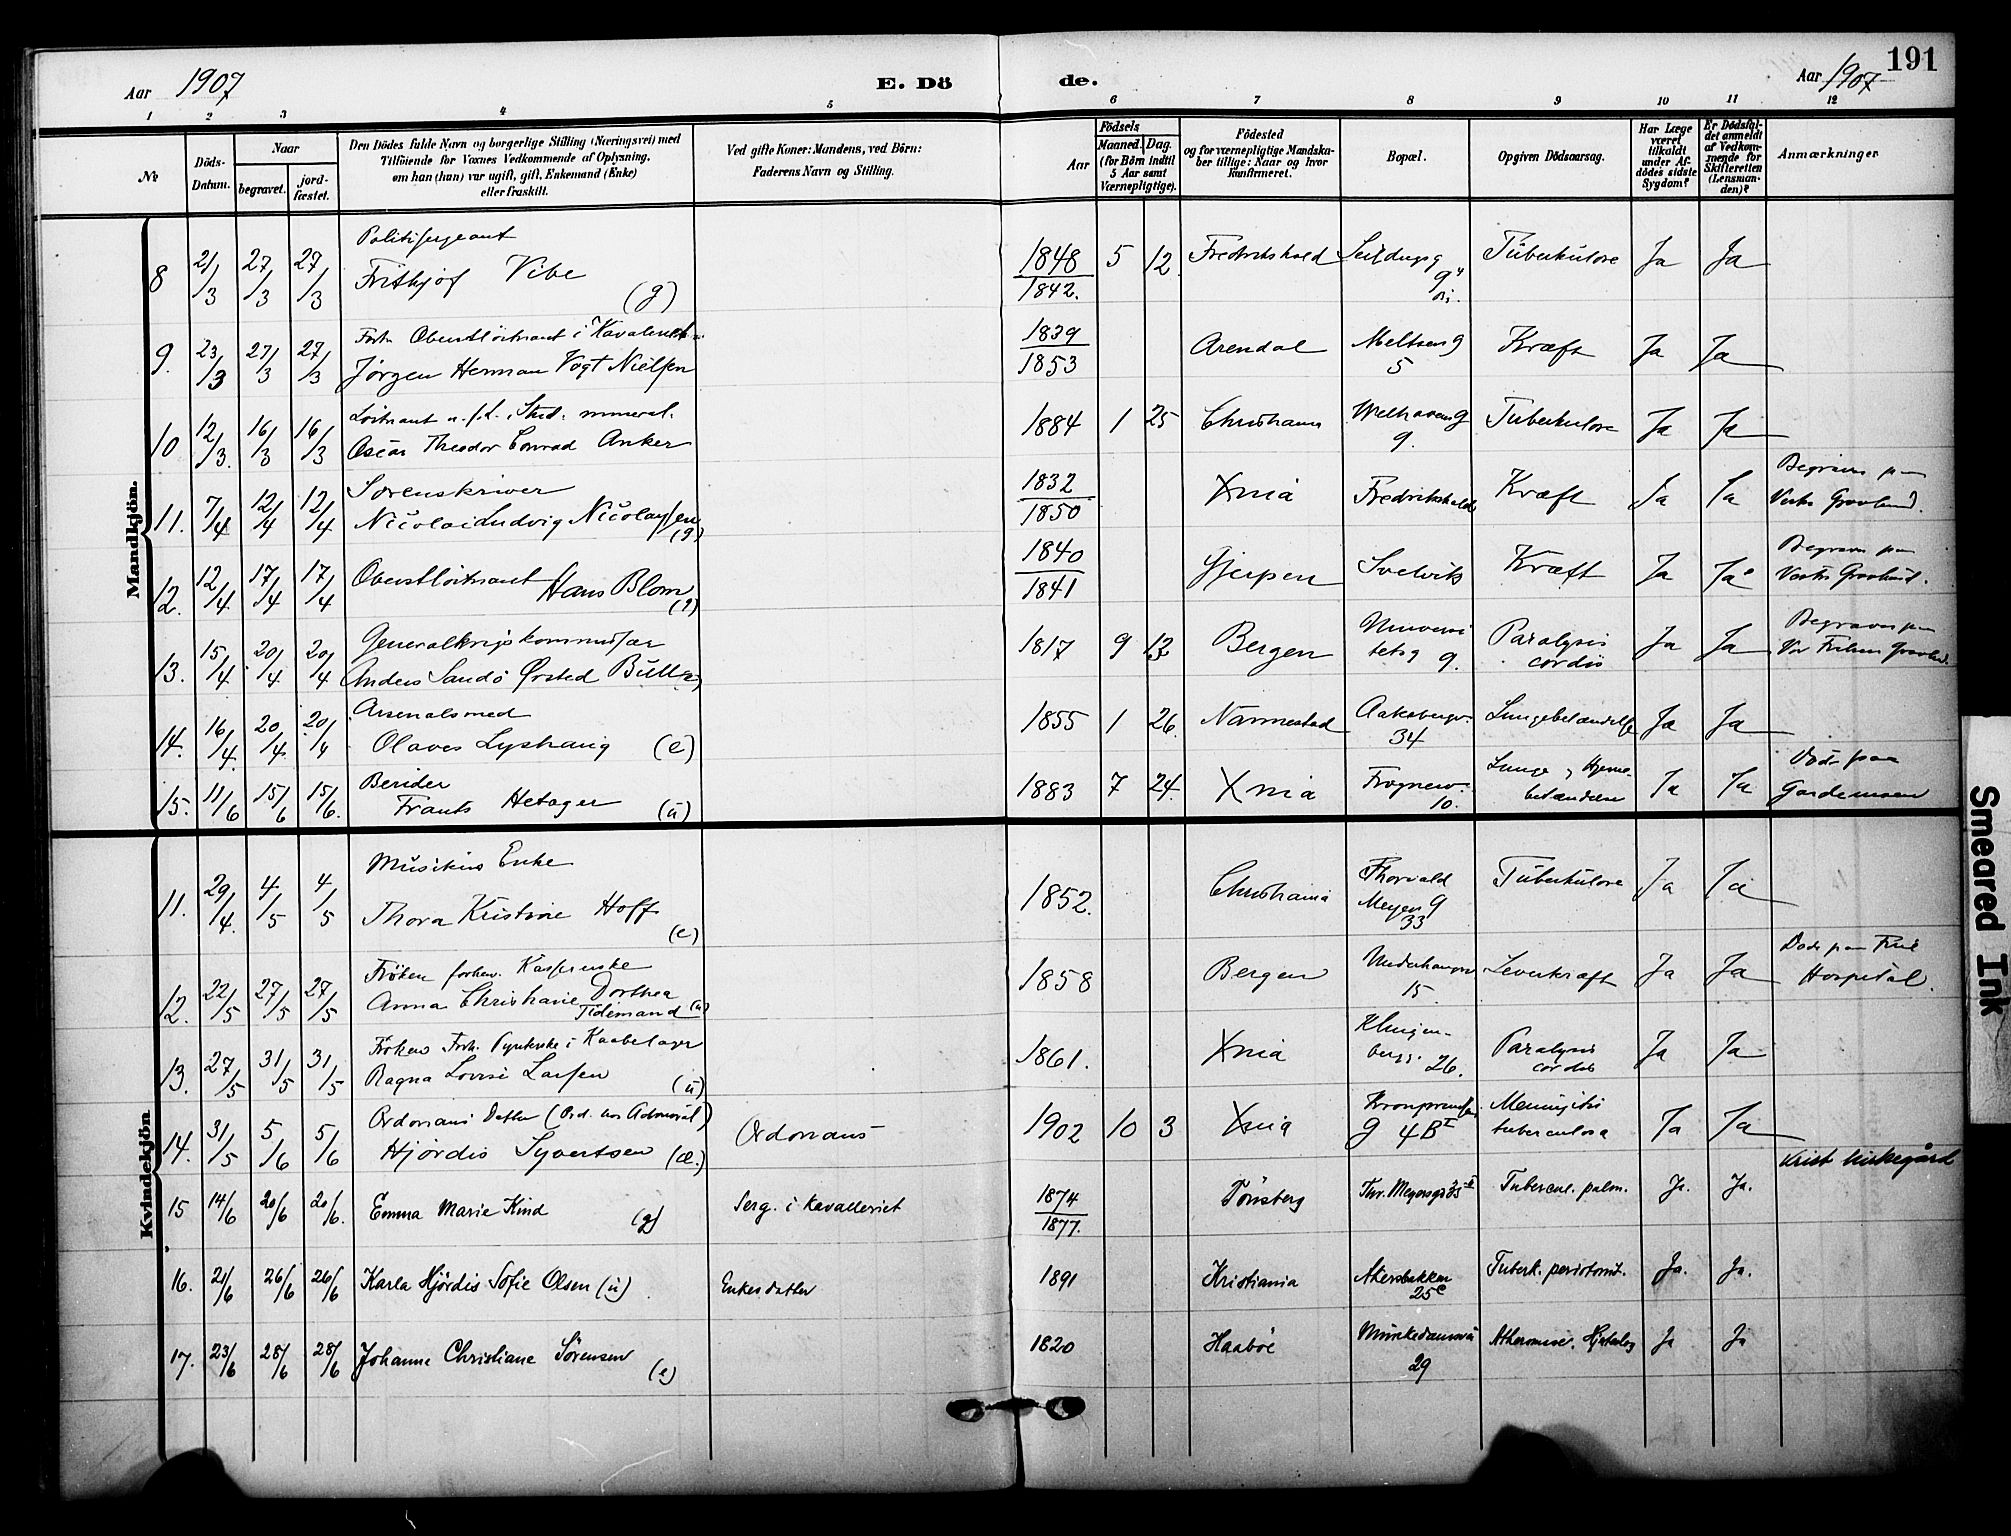 191
Aar 1907
E. Döde.
Aar 1907
1 2 3 4 5 6 7 8 9 10 11 12
№
Döds-Datum.
Naar
begravet.
jordfæstet.
Den Dödes fulde Navn og borgerlige Stilling (Næringsvei) med
Tilföiende for Voxnes Vedkommende af Oplysning,
om han (hun) var ugift, gift, Enkemand (Enke)
eller fraskilt.
Ved gifte Koner: Mandens, ved Börn:
Faderens Navn og Stilling.
Födsels
Aar
Maaned. Dag.
(for Börn indtil
5 Aar samt
Værnepligtige).
Födested
og for værnepligtige Mandska-
ber tillige: Naar og hvor
konfirmeret.
Bopæl.
Opgiven Dödsaarsag.
Har Læge
været
tilkaldt
under Af-
dödes sidste
Sygdom?
Er Dödsfal-
det anmeldt
af Vedkom-
mende for
Skifteretten
(Lensman-
den)?
Anmærkninger
Mandkjön.
Politisergeant
8 21/3 27/3 27/3 Frithjof Vibe (g) 1848/1842. 5 12 Fredrikshald 9 Tuberkulose Ja Ja
Oberstløitnant i Kavaleriet
9. 23/3 27/3 27/3 Jørgen Herman Vogt Nielsen 1839/1853 Arendal Meltzersg 5 Kræft Ja Ja
Løitnant Stud. mineral.
10 12/3. 16/3 16/3 Oscar Theodor Conrad Anker 1884 1 25 Christiania Welhavensg 9. Tuberkulose Ja Ja
Sorenskriver
11. 7/4 12/4 12/4 Nicolai Ludvig Nicolaysen (g) 1832/1850 Xnia Fredrikshald Kræft Ja Ja Begraves paa Vestre Gravlund.
12. 12/4 17/4 17/4 Oberstløitnant Hans Blom (g) 1840/1841 Gjerpen Svelvik Kræft Ja Ja Begraves paa Vestre Gravlund.
Generalkrigskommissær
13. 15/4 20/4 20/4 Anders Sandö Ørsted Bull 1817 9 13 Bergen Universitetsg 9. Paralysis cordis Ja Ja Begraves paa Vor Frelsers Gravlund.
Arsenalsmed
14. 16/4. 20/4 20/4 Olaves Lyshaug (e) 1855 1 26 Nannestad Aakebergv. 34 Lungebetændelse Ja Ja
Berider
15. 11/6 15/6 15/6. Frants Hetager (u) 1883 7 24. Xnia Frognerv. 10. Lunge og Hjerne-betændelse Ja Ja Döde paa Gardemoen
Kvindekjön
Musikers Enke
11. 29/4. 4/5 4/5 Thora Kristine Hoff (e) 1852. Christiania Thorvald Meyersg 33 Tuberkulose Ja Ja
Frøken forhen.
12. 22/5 27/5 27/5 Anna Christiane Dorthea Tidemand (u) 1858 Bergen 15. Leverkræft Ja Ja Døde paa Hospital.
Frøken Forh. i
13. 27/5 31/5 31/5 Ragna Lovise Larsen (u) 1861. Xnia Klingenbergg. 26. Paralysis cordis Ja Ja
Ordonans Datter (Ord. hos Admiral)
14. 31/5 5/6 5/6 Hjördis Syvertsen Ordonans 1902 10 3 Xnia Kronprinsens g 4 B I Meningitis tuberculosa Ja Ja
Krist kirkegård
15 14/6 20/6 20/6. Emma Marie Kind (g) Serg. i Kavalleriet 1874/1877. Tönsberg Thv. Meyersg 35 II Tubercul. pulm. Ja. Ja.
16. 21/6 26/6 26/6 Karla Hjördis Sofie Olsen (u) Enkes datter 1891 Kristiania Akersbakken 25 c Tuberk. peritonit. Ja. Ja.
17. 23/6 28/6 28/6 Johanne Christiane Sörensen (e) 1820 Haaböl Munkedamsvei 29 Ja Ja
Smeared Ink